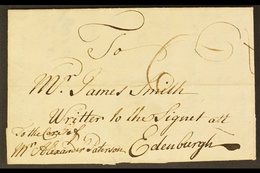 To
Mr. James Smith
Writter to the Signet att
Edenburgh
To the Care of
Mr Alexander Paterson